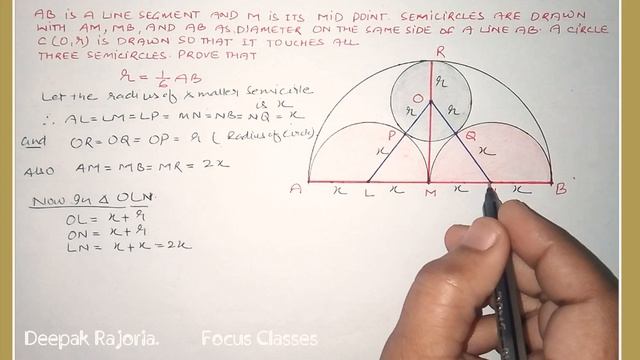 AB IS A LINE SEGMENT AND M IS ITS MID POINT. SEMICIRCLES ARE DRAWN
WITH AM, MB, AND AB AS DIAMETER ON THE SAME SIDE OF A LINE AB. A CIRCLE
C(O,r) IS DRAWN SO THAT IT TOUCHES ALL
THREE SEMICIRCLES. PROVE THAT
r = 1/6 AB
Let the radius of smaller semicircle
is x
∴ AL = LM = LP = MN = NB = NQ = x
and OR = OQ = OP = r (Radius of Circle)
Also AM = MB = MR = 2x
Now In Δ OLN
OL = x + r
ON = x + r
LN = x + x = 2x
R
r
O
r r
P Q
x x
A x L x M x x B
Deepak Rajoria. Focus Classes